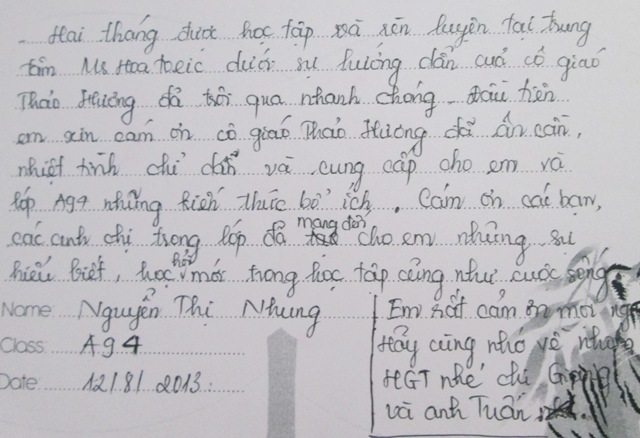 - Hai tháng được học tập và rèn luyện tại trung
tâm Ms Hoa toeic dưới sự hướng dẫn của cô giáo
Thảo Hương đã trôi qua nhanh chóng. Đầu tiên
em xin cảm ơn cô giáo Thảo Hương đã ân cần,
nhiệt tình chỉ dẫn và cung cấp cho em và
lớp A94 những kiến thức bổ ích. Cảm ơn các bạn,
các anh chị trong lớp đã mang đến cho em những sự
hiểu biết, học hỏi mới trong học tập cũng như cuộc sống
Name Nguyễn Thị Nhung
Class A94
Date 12/8/2013.
Em rất cảm ơn mọi ng
Hãy cùng nhớ về nhóm
HGT nhé chị Giang
và anh Tuấn